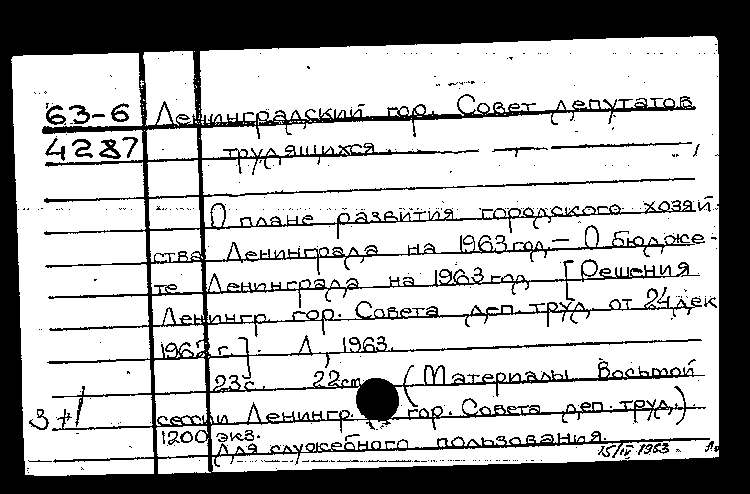 63-6 Ленинградский гор. Совет депутатов
4287 трудящихся.
О плане развития городского хозяй-
ства Ленинграда на 1963 год.— О бюдже-
те Ленинграда на 1963 год [Решения
Ленингр. гор. Совета деп. труд. от 24 дек
1962 г.]. Л., 1963.
23с. 22cm. (Материалы Восьмой
3+1 сессии Ленингр. гор. Совета деп. труд.)
1200 экз.
Для служебного пользования.
15/IV 1963